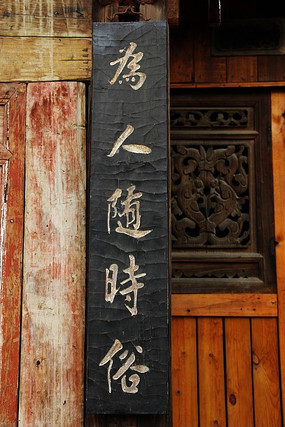 為人随時俗